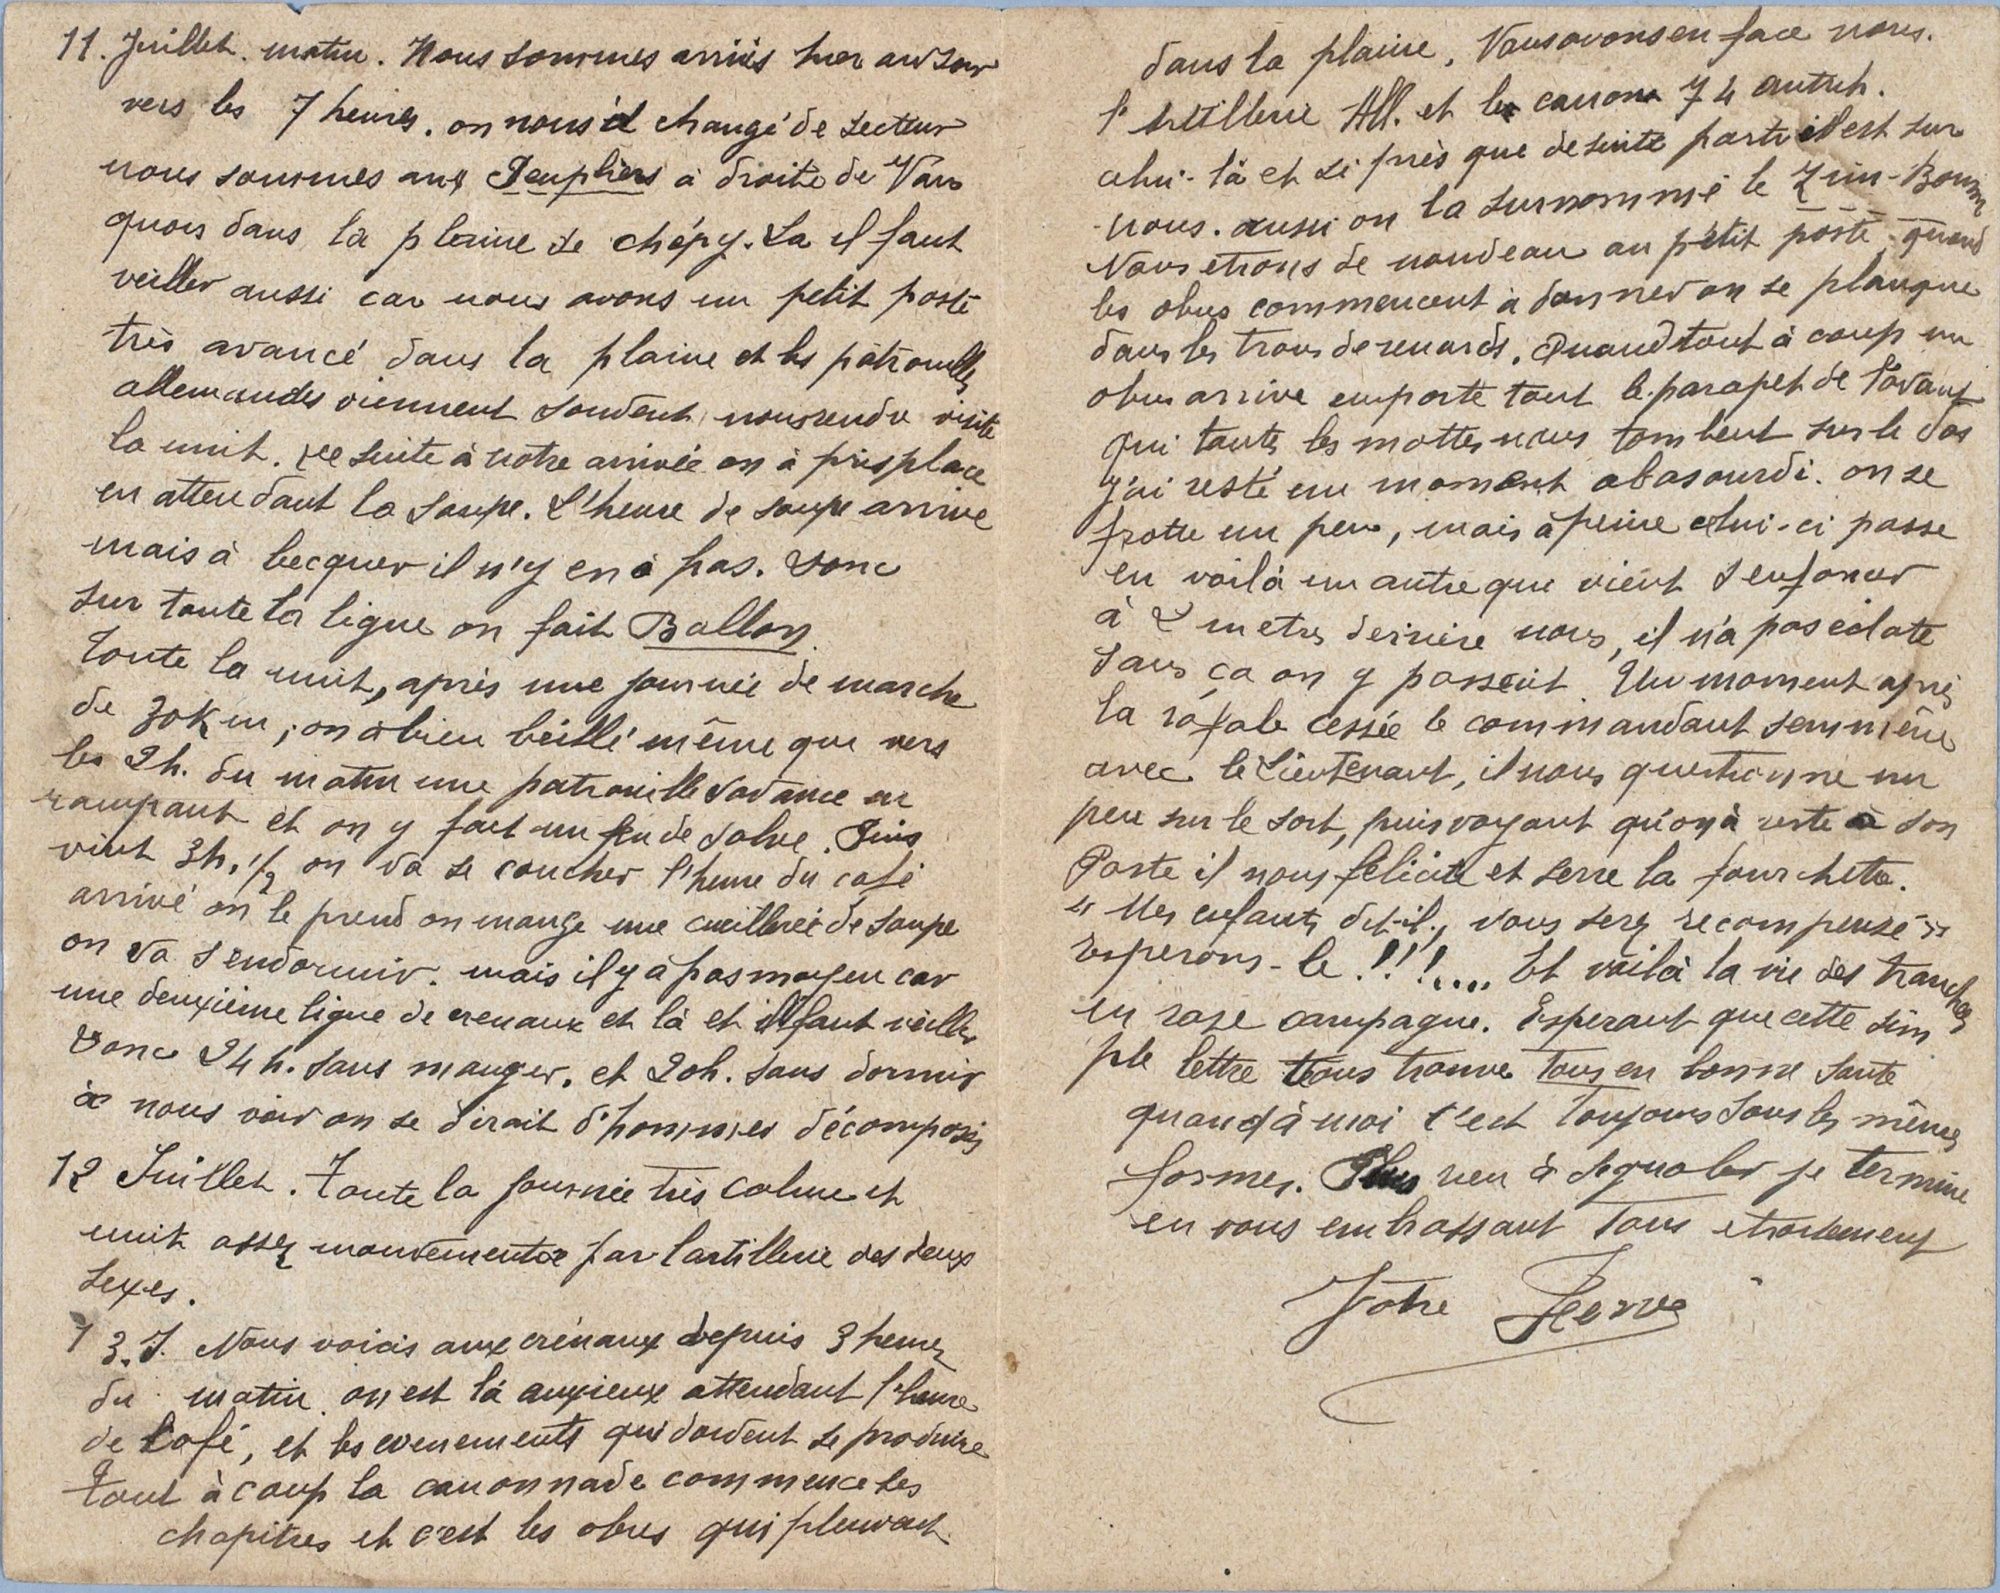 11. Juillet. matin. Nous sommes arrivés hier au soir
vers les 7 heures. on nous à changé de secteur
nous sommes aux Peupliers à droite de Vau
quois dans la plaine de chépy. La il faut
veiller aussi car nous avons un petit poste
très avancé dans la plaine et les patrouilles
allemandes viennent souvent nous rendre visite
la nuit. de suite à notre arrivée on à pris place
en attendant la soupe. L'heure de soupe arrive
mais à becquer il n'y en à pas. Donc
sur toute la ligne on fait Ballon.
Toute la nuit, après une journée de marche
de 30 Km, on à bien veillé même que vers
les 2h. du matin une patrouille s'avance en
rampant et on y fait un feu de salve. Puis
vint 3h. 1/2 on va se coucher l'heure du café
arrivé on le prend on mange une cueillerée de soupe
on va s'endormir. mais il y à pas moyen car
une deuxième ligne de crenaux et là et il faut veiller
Donc 24 h. sans manger. et 20h. sans dormir
à nous voir on se dirait d'hommes décomposés
12 Juillet. Toute la journée très calme et
nuit assez mouvementée par l'artillerie des deux
sexes.
13. J. Nous voicis aux crénaux depuis 3 heures
du matin. on est là anxieux attendant l'heure
de Café, et les evenements qui doivent se produire
tout à coup la canonnade commence les
chapitres et c'est les obus qui pleuvent
dans la plaine. Nous avons en face nous.
l'Artillerie All. et le canon 74 autrch.
celui-là et si près que de suite parti il est sur
nous. aussi on la surnommé le Zim-Boum
Nous etions de nouveau au petit poste quand
les obus commencent à donner on se planque
dans les trous de renards. Quand tout à coup un
obus arrive emporte tout le parapet de l'avant
qui toutes les mottes nous tombent sur le dos
j'ai resté un moment abasourdi. on se
frotte un peu, mais à peine celui-ci passe
en voilà un autre que vient s'enfoncer
à 2 metres derrière nous, il n'a pas éclate
sans ça on y passait. Un moment après
la rafale cessée le commandant s'emmène
avec le Lieutenant, il nous questionne un
peu sur le sort, puis voyant qu'on à reste à son
Poste il nous félicite et serre la fourchette.
" Mes enfants dit-il, vous serez recompensé "
Esperons-le !!!.... Et voilà la vie des tranchées
en rase campagne. Esperant que cette sim
ple lettre vous trouve tous en bonne santé
quand à moi c'est toujours sous les mêmes
formes. Plus rien à signaler je termine
en vous embrassant Tous etroitement
Votre